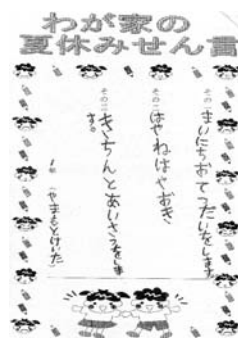 わが家の
夏休みせん言
その一 まいにちおてつだいをします
その二 はやねはやおき
その三 きちんとあいさつをしま
す。
（やまもとけいた）